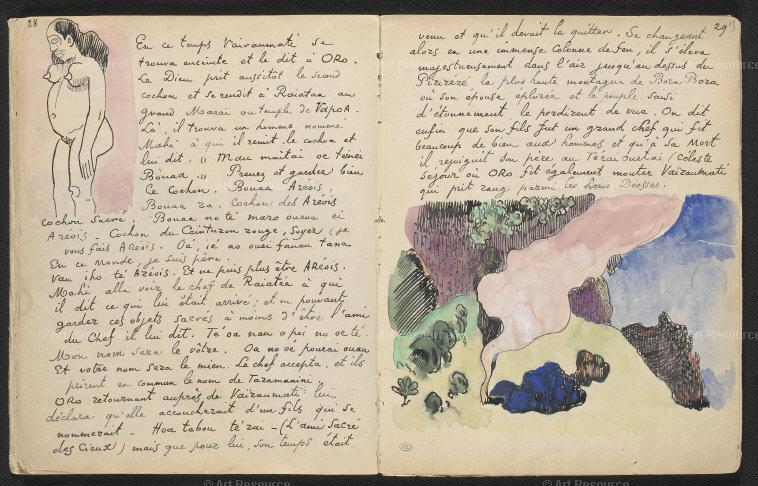 28
En ce temps Vaïraumati se
trouva enceinte et le dit à Oro.
Le Dieu prit aussitôt le second
cochon et se rendit à Raïatea au
grand Maraï ou temple de Vapoa.
Là, il trouva un homme nommé
Mahi à qui il remit le cochon et
lui dit. " Mau maitai oe teinei
Bouaa " Prenez et gardez bien
Ce Cochon. Bouaa Areois.
Bouaa ra. Cochon des Areois
Cochon Sacré. Bouaa no té maro ouroa ei
Areois. Cochon du Ceinturon rouge, Soyez (je
vous fais Areois. Oa, ié ao ouei fanau tama
En ce monde, je suis père.
Vau iho té Areois. Et ne puis plus être Areois.
Mahi alla voir le chef de Raiatea à qui
il dit ce qui lui était arrivé; et ne pouvant
garder ces objets sacrés à moins d'être l'ami
du Chef il lui dit. Te'oa nau o poi no oe té.
Mon nom sera le vôtre. Oa no oé pourai ouau
Et votre nom sera le mien. Le chef accepta, et ils
prirent en commun le nom de Taramanini.
Oro retournant auprès de Vaïraumati lui
déclara qu'elle accoucherait d'un fils qui se
nommerait - Hoa tabou té raï - (L'ami Sacré
des Cieux) mais que pour lui, son temps était
29
venu et qu'il devait la quitter. Se changeant
alors en une immense Colonne de feu, il s'éleva
majestueusement dans l'air jusqu'au dessus du
Piriréré la plus haute montagne de Bora Bora
où son épouse eplorée et le peuple saisi
d'étonnement le perdirent de vue. On dit
enfin que son fils fut un grand chef qui fit
beaucoup de bien aux hommes et qu'à sa mort
il rejoignit son père au Teraï (Céleste
sejour où Oro fit également monter Vaïraumati
qui prit rang parmi les Déesses.
© Art Resource
© Art Resource
© Art Resource
© Art Resource